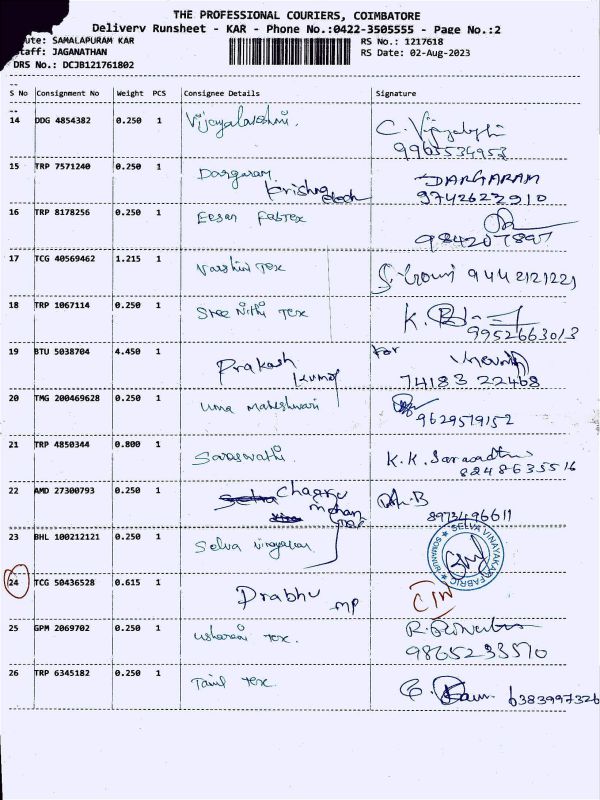 THE PROFESSIONAL COURIERS, COIMBATORE
Delivery Runsheet - KAR - Phone No.:0422-3505555 - Page No.:2
ute: SAMALAPURAM KAR RS No.: 1217618
taff: JAGANATHAN RS Date: 02-Aug-2023
DRS No.: DCJB121761802
S No Consignment No Weight PCS Consignee Details Signature
14 DDG 4854382 0.250 1 Vijayalakshmi. C. Vijayalakshmi
9965534953
15 TRP 7571240 0.250 1 Dargaram DARGARAM
Krishna 9742622910
16 TRP 8178256 0.250 1 Eesan Fabtex
9842078897
17 TCG 40569462 1.215 1 Varshini Tex 9442121221
18 TRP 1067114 0.250 1 Sree Nithi Tex K.
9952663013
19 BTU 5038704 4.450 1 Prakash For
Kumar 74183 22468
20 TMG 200469628 0.250 1 Uma Maheshwari
9629519152
21 TRP 4850344 0.800 1 Saraswathi K.K.
8248635516
22 AMD 27300793 0.250 1 mohan
8973496611
23 BHL 100212121 0.250 1 Selva Vinayakar SELVA VINAYAKA FABRIC SOMANUR
24 TCG 50436528 0.615 1 Prabhu MP
25 GPM 2069702 0.250 1 Tex. R.
9865233570
26 TRP 6345182 0.250 1 Tamil Tex. 6383997326